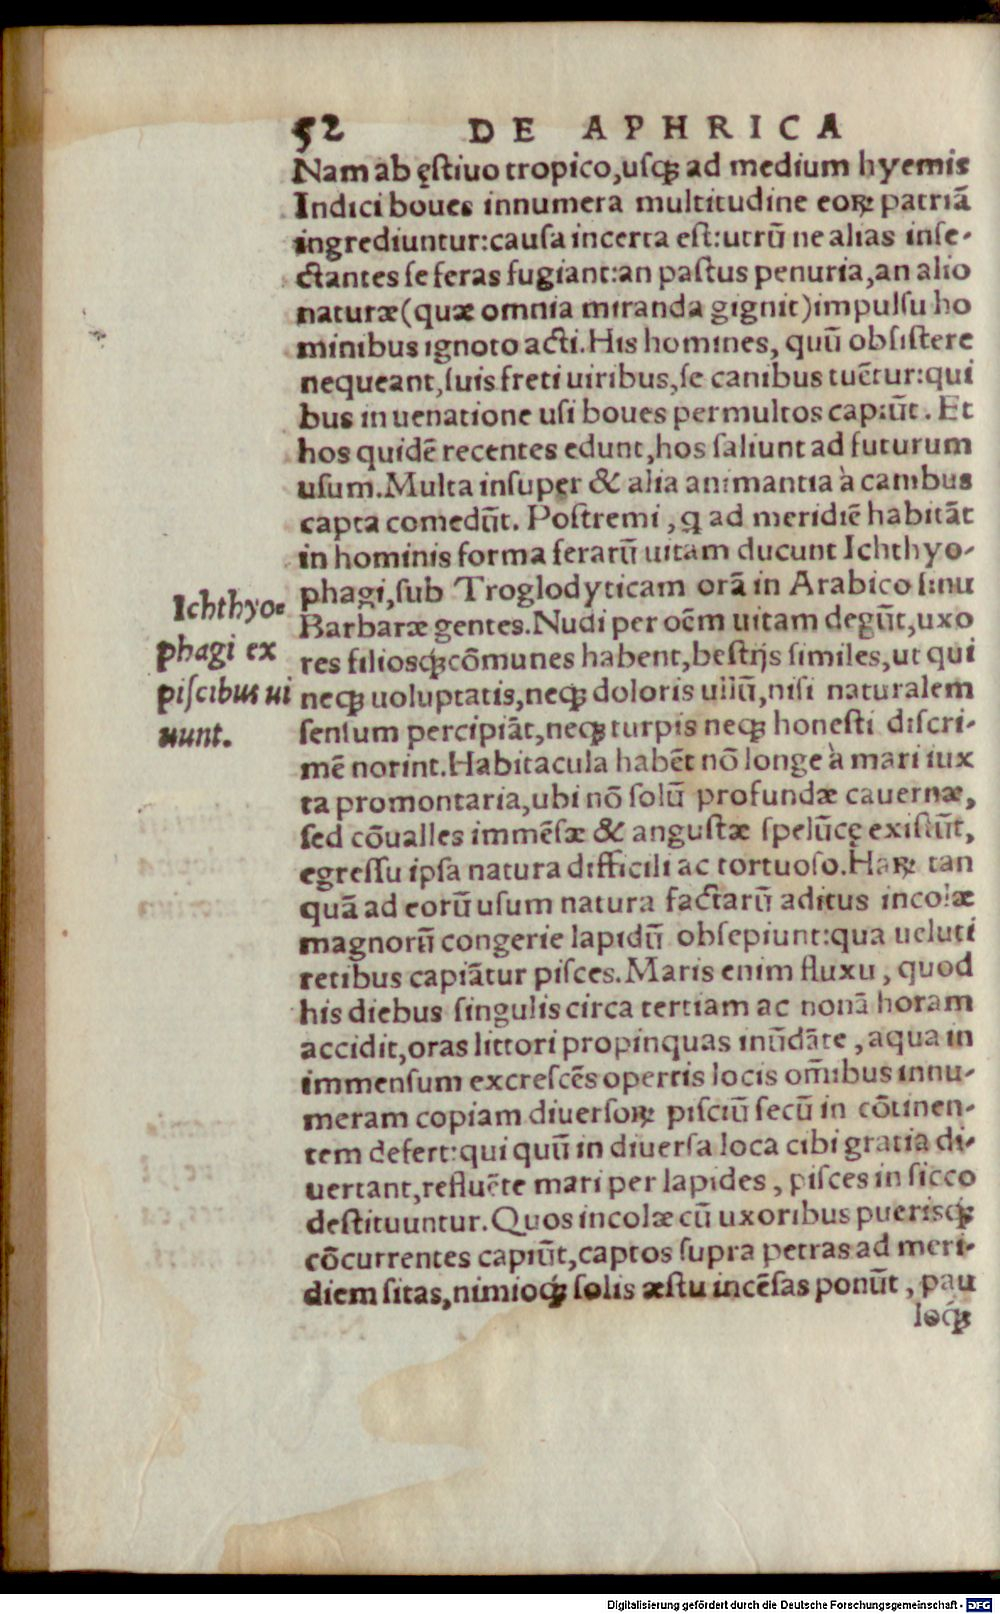 52 DE APHRICA
Nam ab ęſtiuo tropico,uſqꝫ ad medium hyemis
Indici boues innumera multitudine eoꝝ patriã
ingrediuntur:cauſa incerta eſt:utrũ ne alias inſe-
ctantes ſe feras fugiant:an paſtus penuria,an alio
naturæ(quæ omnia miranda gignit)impulſu ho
minibus ignoto acti.His homines, quũ obſiſtere
nequeant,ſuis freti uiribus,ſe canibus tuẽtur:qui
bus in uenatione uſi boues permultos capiũt. Et
hos quidẽ recentes edunt,hos ſaliunt ad futurum
uſum.Multa inſuper & alia animantia à canibus
capta comedũt. Poſtremi, q ad meridiẽ habitãt
in hominis forma ferarũ uitam ducunt Ichthyo-
phagi,ſub Troglodyticam orã in Arabico ſinu
Barbaræ gentes.Nudi per oẽm uitam degũt,uxo
res filioſqꝫ cõmunes habent,beſtijs ſimiles,ut qui
neqꝫ uoluptatis,neqꝫ doloris ullũ,niſi naturalem
ſenſum percipiãt,neqꝫ turpis neqꝫ honeſti diſcri-
mẽ norint.Habitacula habẽt nõ longe à mari iux
ta promontaria,ubi nõ ſolũ profundæ cauernæ,
ſed cõualles immẽſæ & anguſtæ ſpelũcę exiſtũt,
egreſſu ipſa natura difficili ac tortuoſo.Haꝝ tan
quã ad eorũ uſum natura factarũ aditus incolæ
magnorũ congerie lapidũ obſepiunt:qua ueluti
retibus capiãtur piſces.Maris enim fluxu, quod
his diebus ſingulis circa tertiam ac nonã horam
accidit,oras littori propinquas inũdãte, aqua in
immenſum excreſcẽs opertis locis om̃ibus innu-
meram copiam diuerſoꝝ piſciũ ſecũ in cõtinen-
tem defert:qui quũ in diuerſa loca cibi gratia di-
uertant,refluẽte mari per lapides, piſces in ſicco
deſtituuntur.Quos incolæ cũ uxoribus pueriſqꝫ
cõcurrentes capiũt,captos ſupra petras ad meri-
diem ſitas,nimioqꝫ ſolis æſtu incẽſas ponũt, pau
loqꝫ
Ichthyo-
phagi ex
piſcibus ui
uunt.
Digitalisierung gefördert durch die Deutsche Forschungsgemeinschaft - DFG